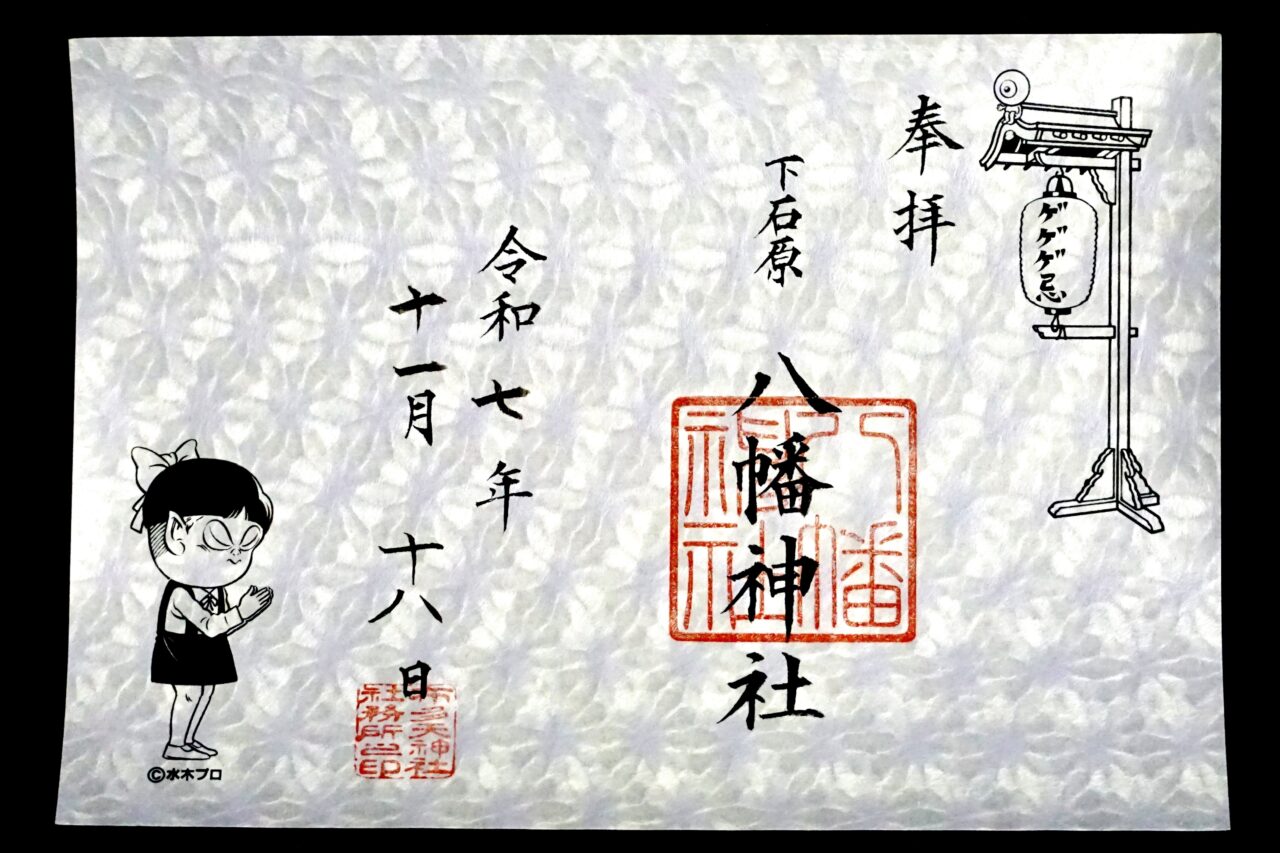 ゲゲゲ忌
奉拝
下石原
八幡神社
八幡
神社
令和七年
十一月十八日
布多天神社
社務所之印
©水木プロ